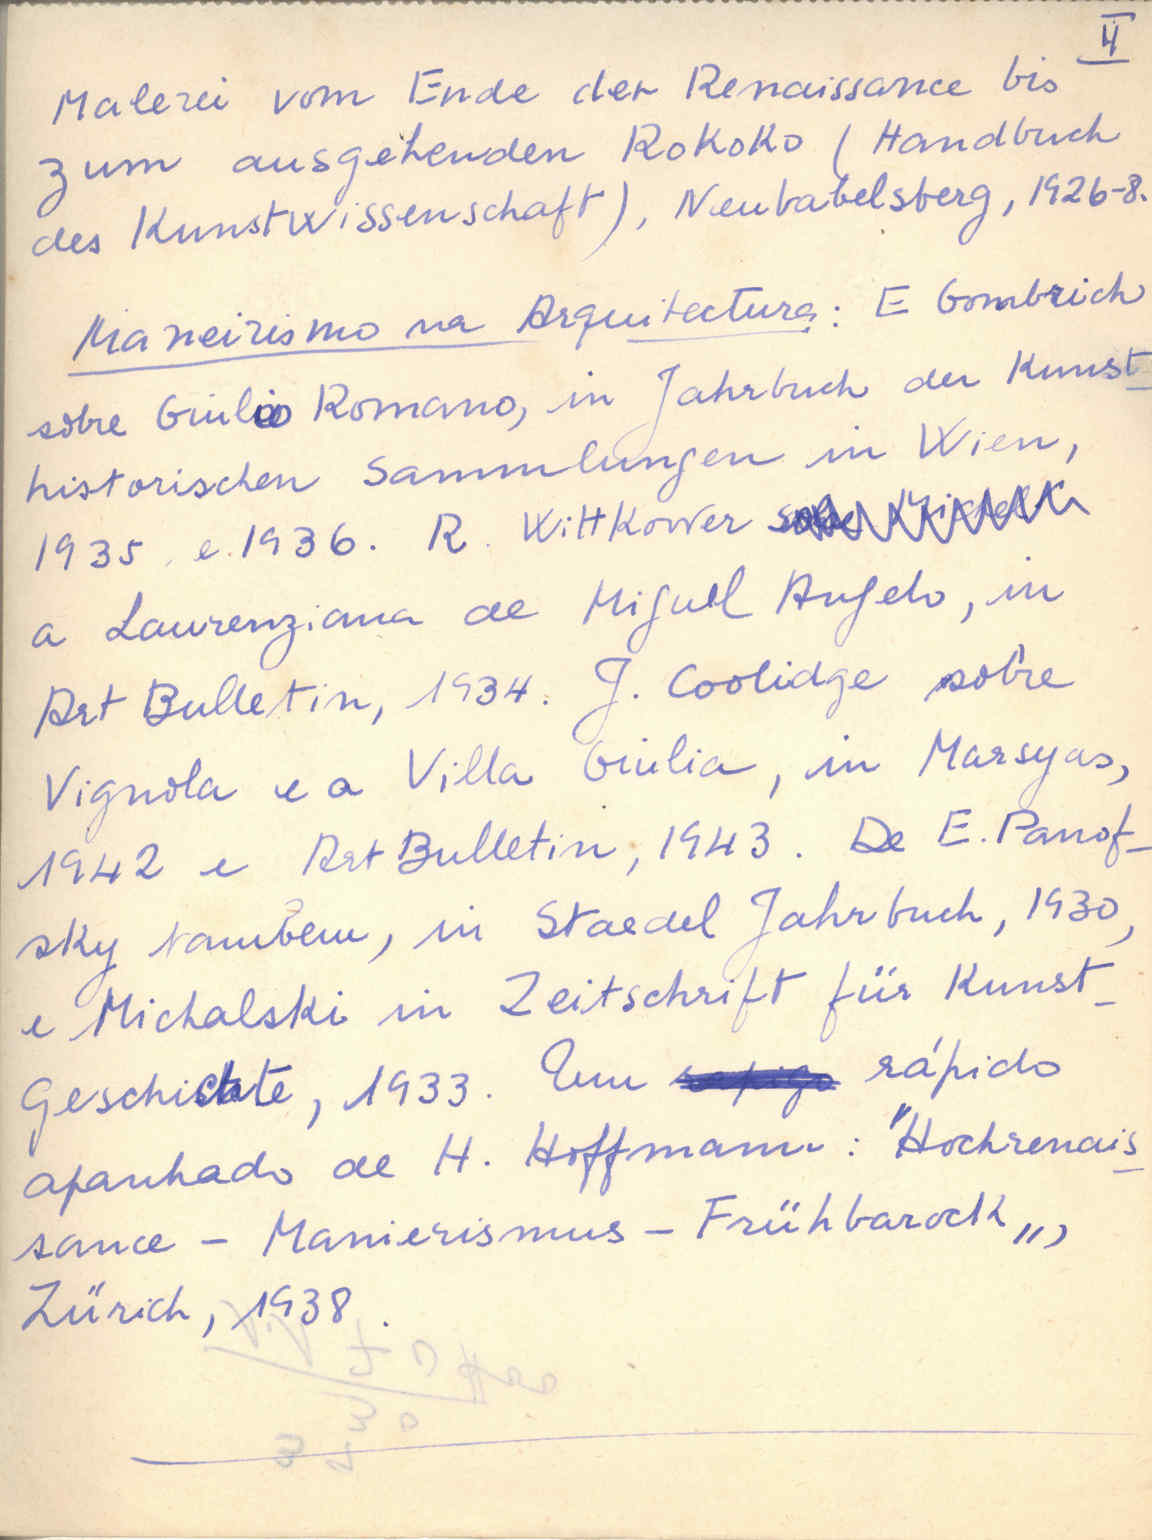 4
Malerei vom Ende der Renaissance bis
zum ausgehenden Rokoko (Handbuch
des Kunstwissenschaft), Neubabelsberg, 1926-8.
Maneirismo na Arquitectura: E Gombrich
sôbre Giulio Romano, in Jahrbuch der Kunst-
historischen Sammlungen in Wien,
1935 e 1936. R. Wittkower
a Laurenziana de Miguel Angelo, in
Art Bulletin, 1934. J. Coolidge sôbre
Vignola e a Villa Giulia, in Marsyas,
1942 e Art Bulletin, 1943. De E. Panof-
sky também, in Staedel Jahrbuch, 1930,
e Michalski in Zeitschrift für Kunst-
Geschichte, 1933. Um rápido
apanhado de H. Hoffmann: "Hochrenais
sance - Manierismus - Frühbarock",
Zürich, 1938.